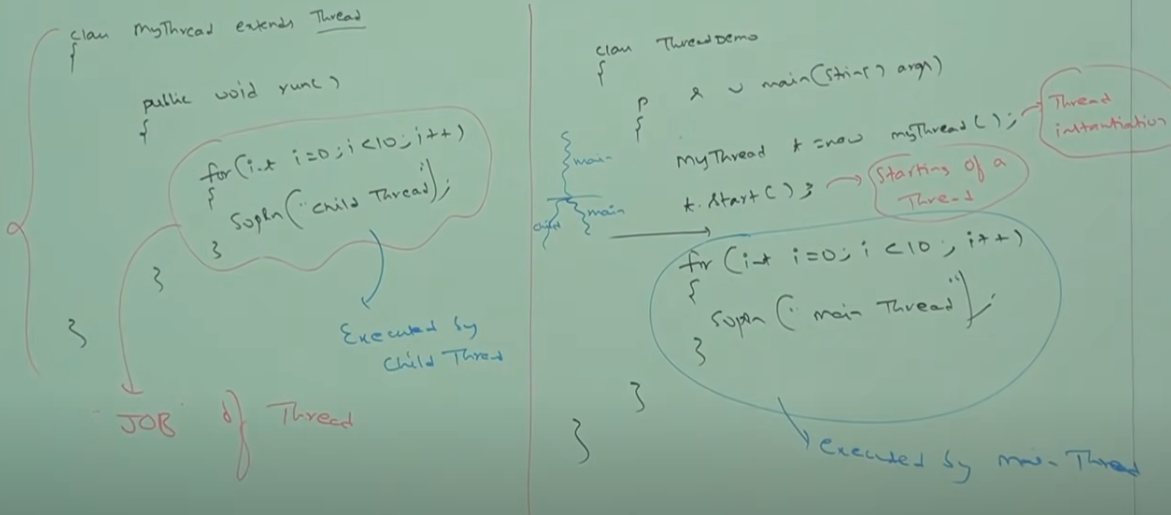 class MyThread extends Thread
{
public void run()
{
for(int i=0; i<10; i++)
{
Sopln("child Thread");
}
}
}
Executed by
Child Thread
"JOB" of Thread
class ThreadDemo
{
P S V main(String[] args)
{
MyThread t = new myThread();
Thread
instantiation
t.Start();
Starting of a
Thread
main
child
main
for (int i=0; i<10; i++)
{
Sopln("main Thread");
}
}
}
executed by main Thread